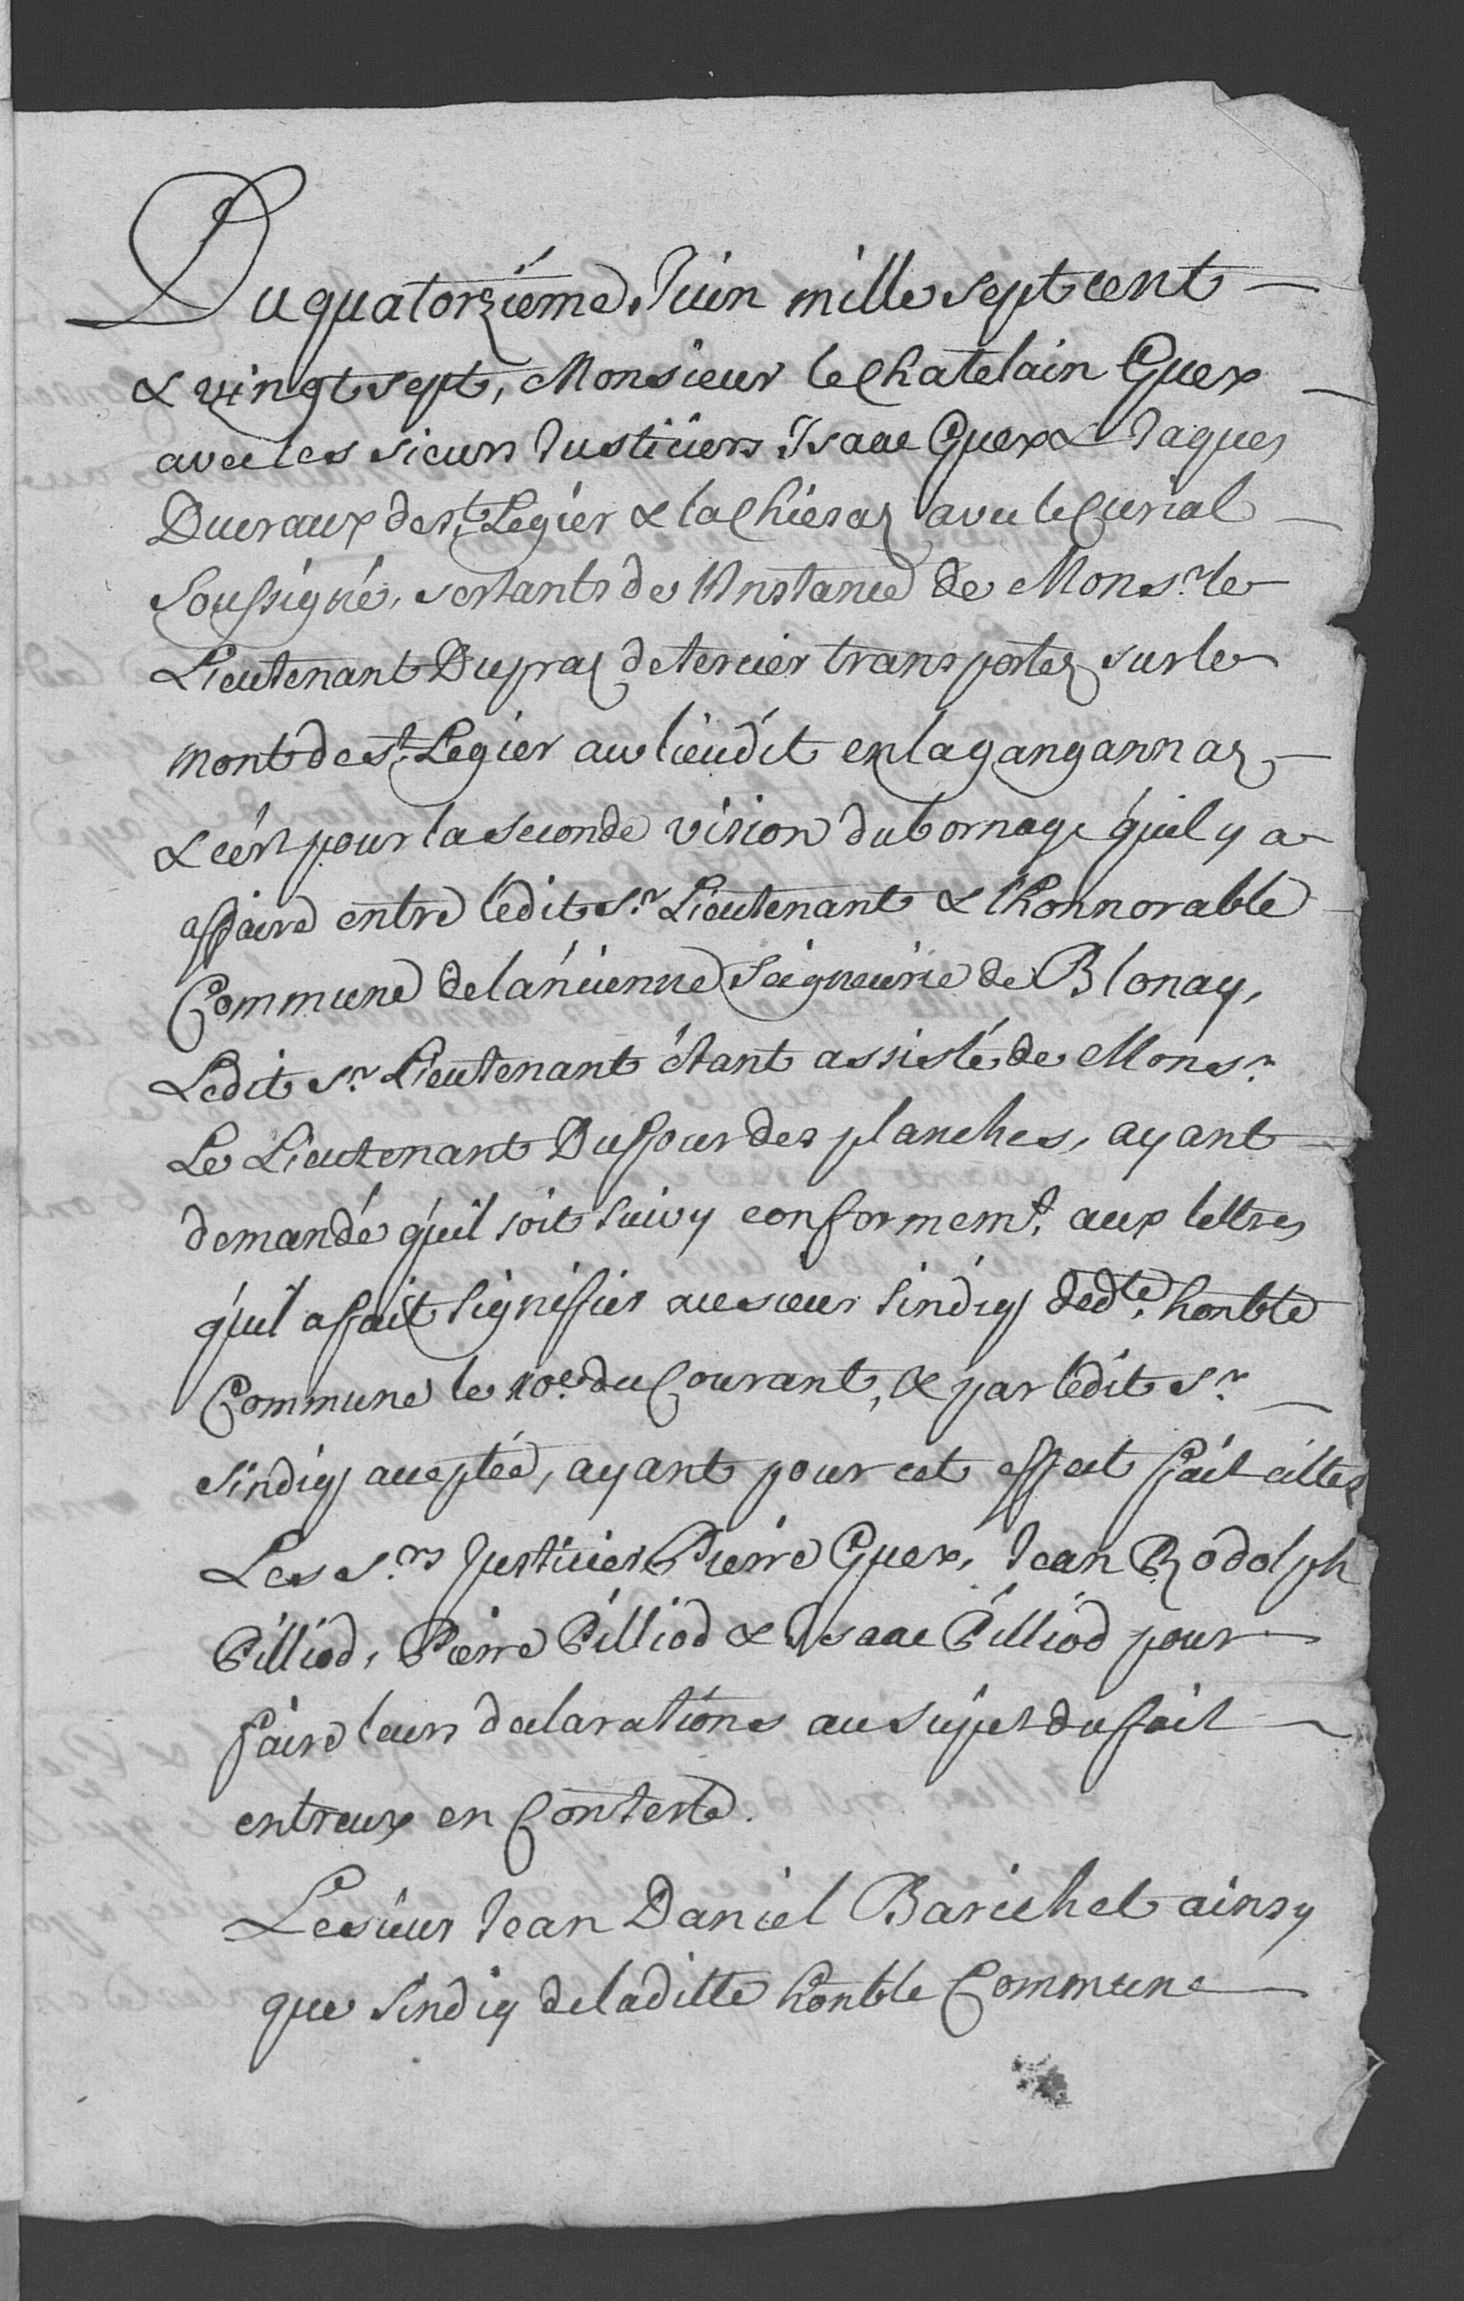 Du quatorziéme Juin mille sept cent
& vingt sept, Monsieur le Chatelain Guex
avec les sieurs Justiciers Isaac Guex & Jaques
Ducraux de st. Legier & la Chiésaz avec le Curial
Soussigné, sestants de l'Instance de Monsr. le
Lieutenant Dupraz de tercier transportez sur le
mont de st. Legier au lieu dit en la gangannaz
& c'ést pour la seconde vision du bornage qu'il y a
affaire entre lédit sr. Lieutenant & l'honnorable
Commune de láncienne Seigneurie de Blonay,
Ledit sr. Lieutenant étant assisté de Monsr.
Le Lieutenant Duffour des planches, ayant
demandé qu'il soit suivy conformemt. aux lettres
qu'il a fait signiffier au sieur sindiq dedte. honble
Commune le 10e. du Courant, & par lédit sr.
sindiq acceptéé, ayant pour cet effect fait citter
Les srs. Justicier Pierre Guex, Jean Rodolph
Pilliod, Pierre Pilliod & Isaac Pilliod pour
faire leurs declarations au sujet du fait
entreux en Conteste.
Le sieur Jean Daniel Barichet ainsy
que sindiq de laditte honble Commune